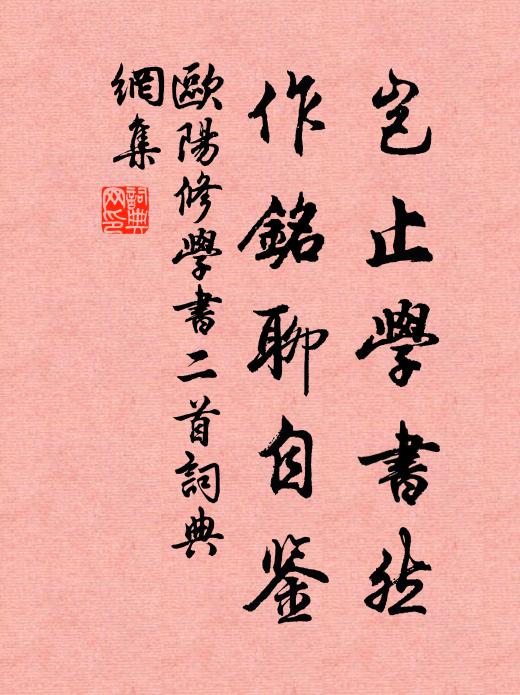 豈止學書然
作銘聊自鉴
歐陽修學書二首詞典
網集
詞典
网印